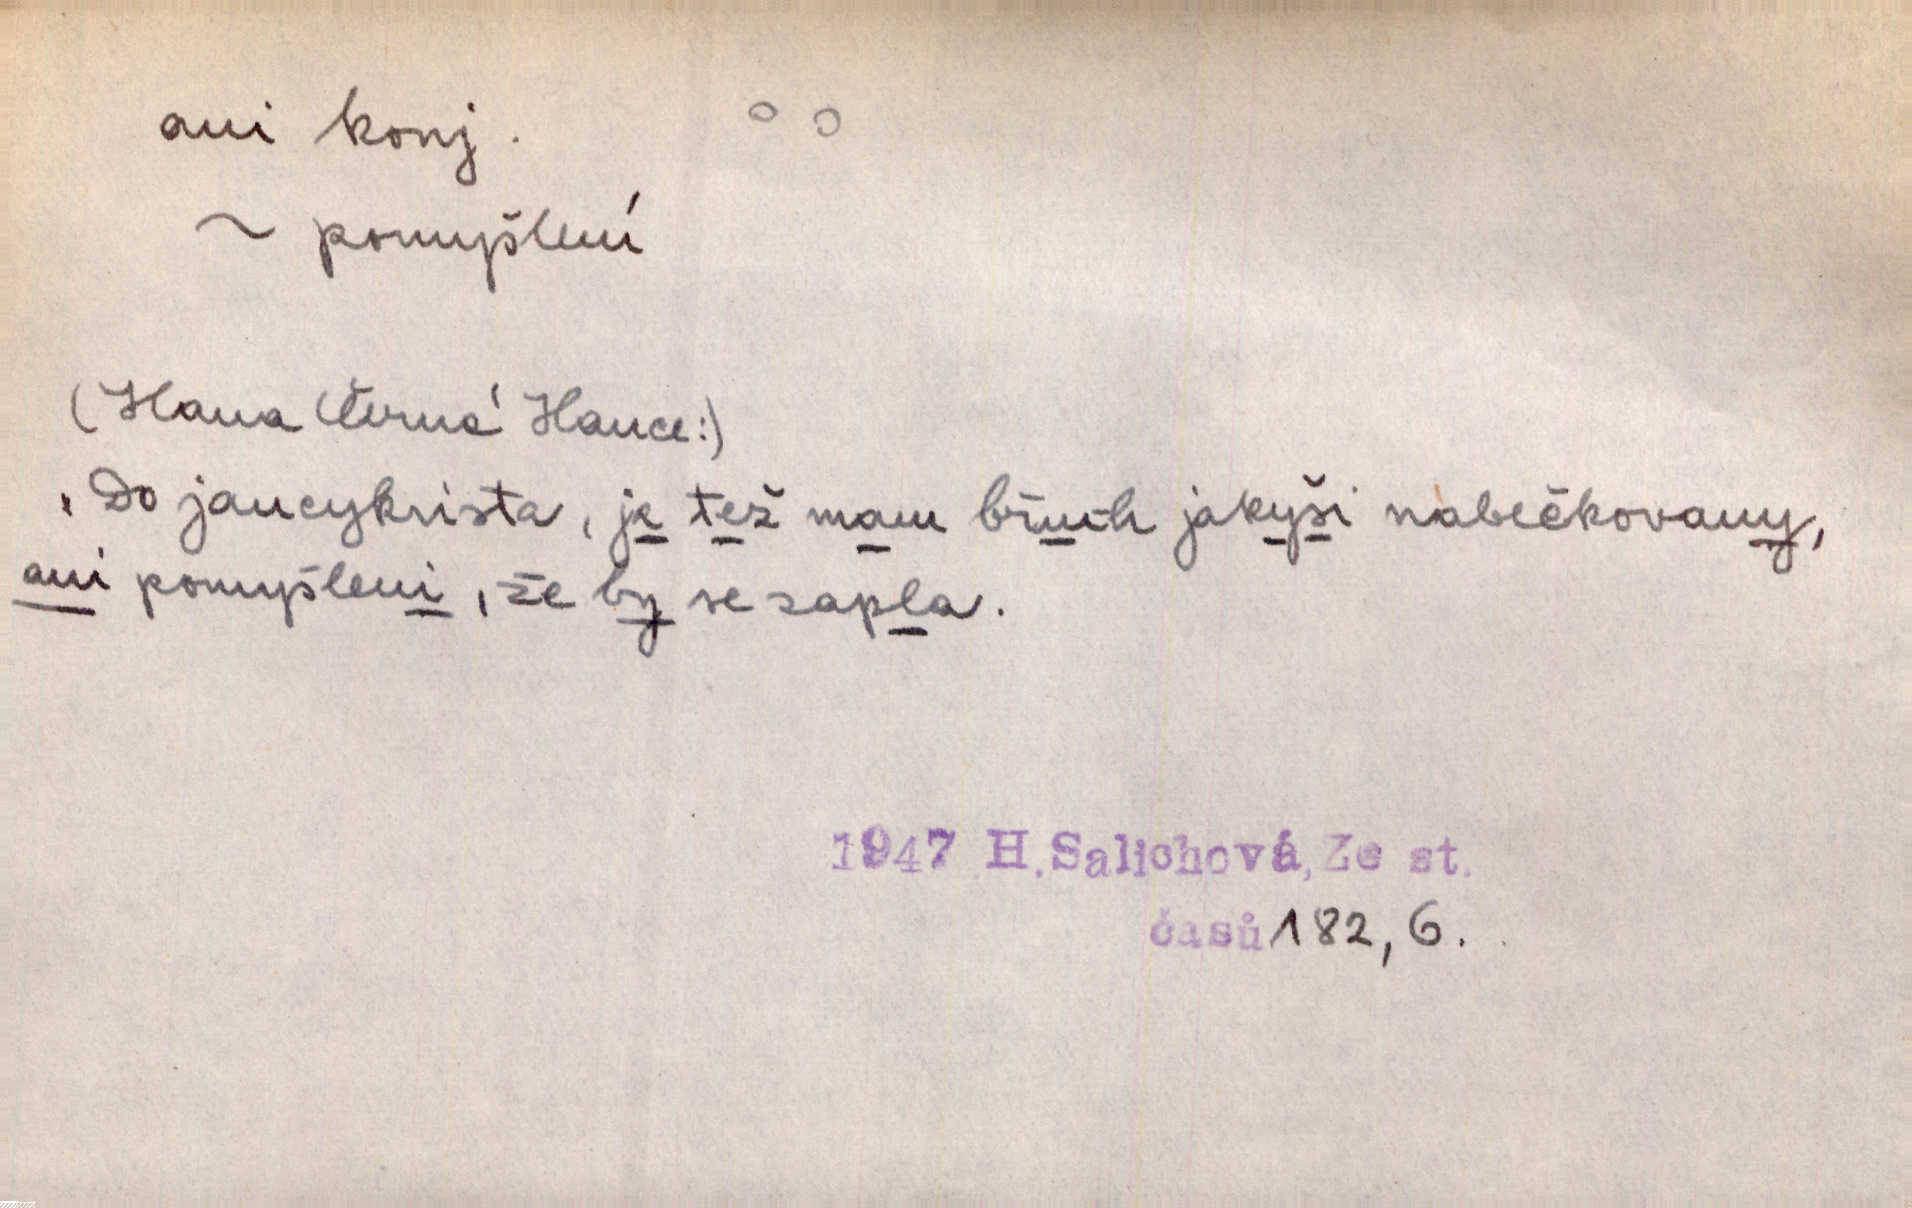 ani konj.
~ pomyšlení
(Hana Černá Hance:)
„Do jancykrista, je tež mam břuch jakyši nabečkovany,
ani pomyšleni, že by se zapla.
1947 H.Salichová, Ze st.
časů 182, 6.